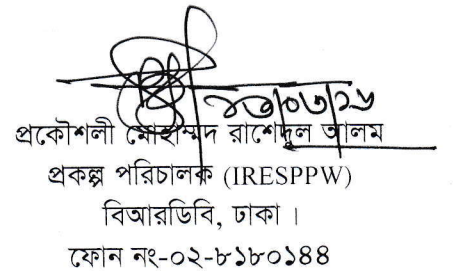 প্রকৌশলী মোহাম্মদ রাশেদুল আলম
প্রকল্প পরিচালক (IRESPPW)
বিআরডিবি, ঢাকা ।
ফোন নং-০২-৮১৮০১৪৪